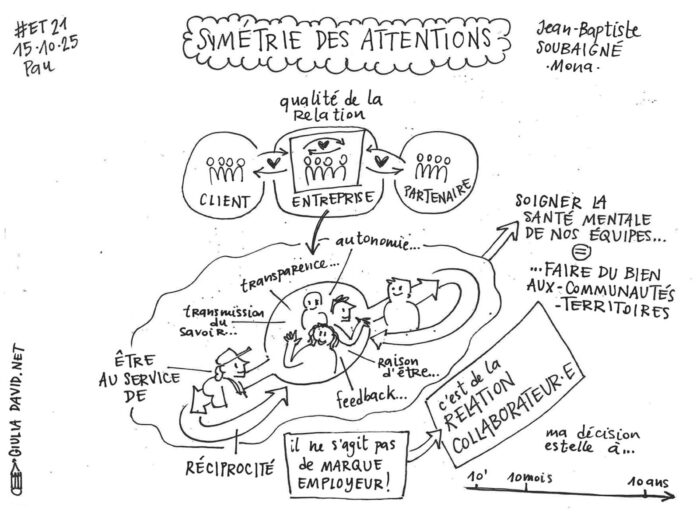 #ET21
15.10.25
Pau
SYMÉTRIE DES ATTENTIONS
Jean-Baptiste
SOUBAIGNÉ
·Mona·
qualité de la
Relation
CLIENT
ENTREPRISE
PARTENAIRE
autonomie...
transparence...
transmission
du
savoir...
raison
d'être...
feedback...
ÊTRE
AU SERVICE
DE
RÉCIPROCITÉ
SOIGNER LA
SANTÉ MENTALE
DE NOS ÉQUIPES...
=
...FAIRE DU BIEN
AUX-COMMUNAUTÉS
-TERRITOIRES
il ne s'agit pas
de MARQUE
EMPLOYEUR!
c'est de la
RELATION
COLLABORATEUR·E
ma décision
estelle à...
10'
10mois
10ans
GIULIADAVID.NET